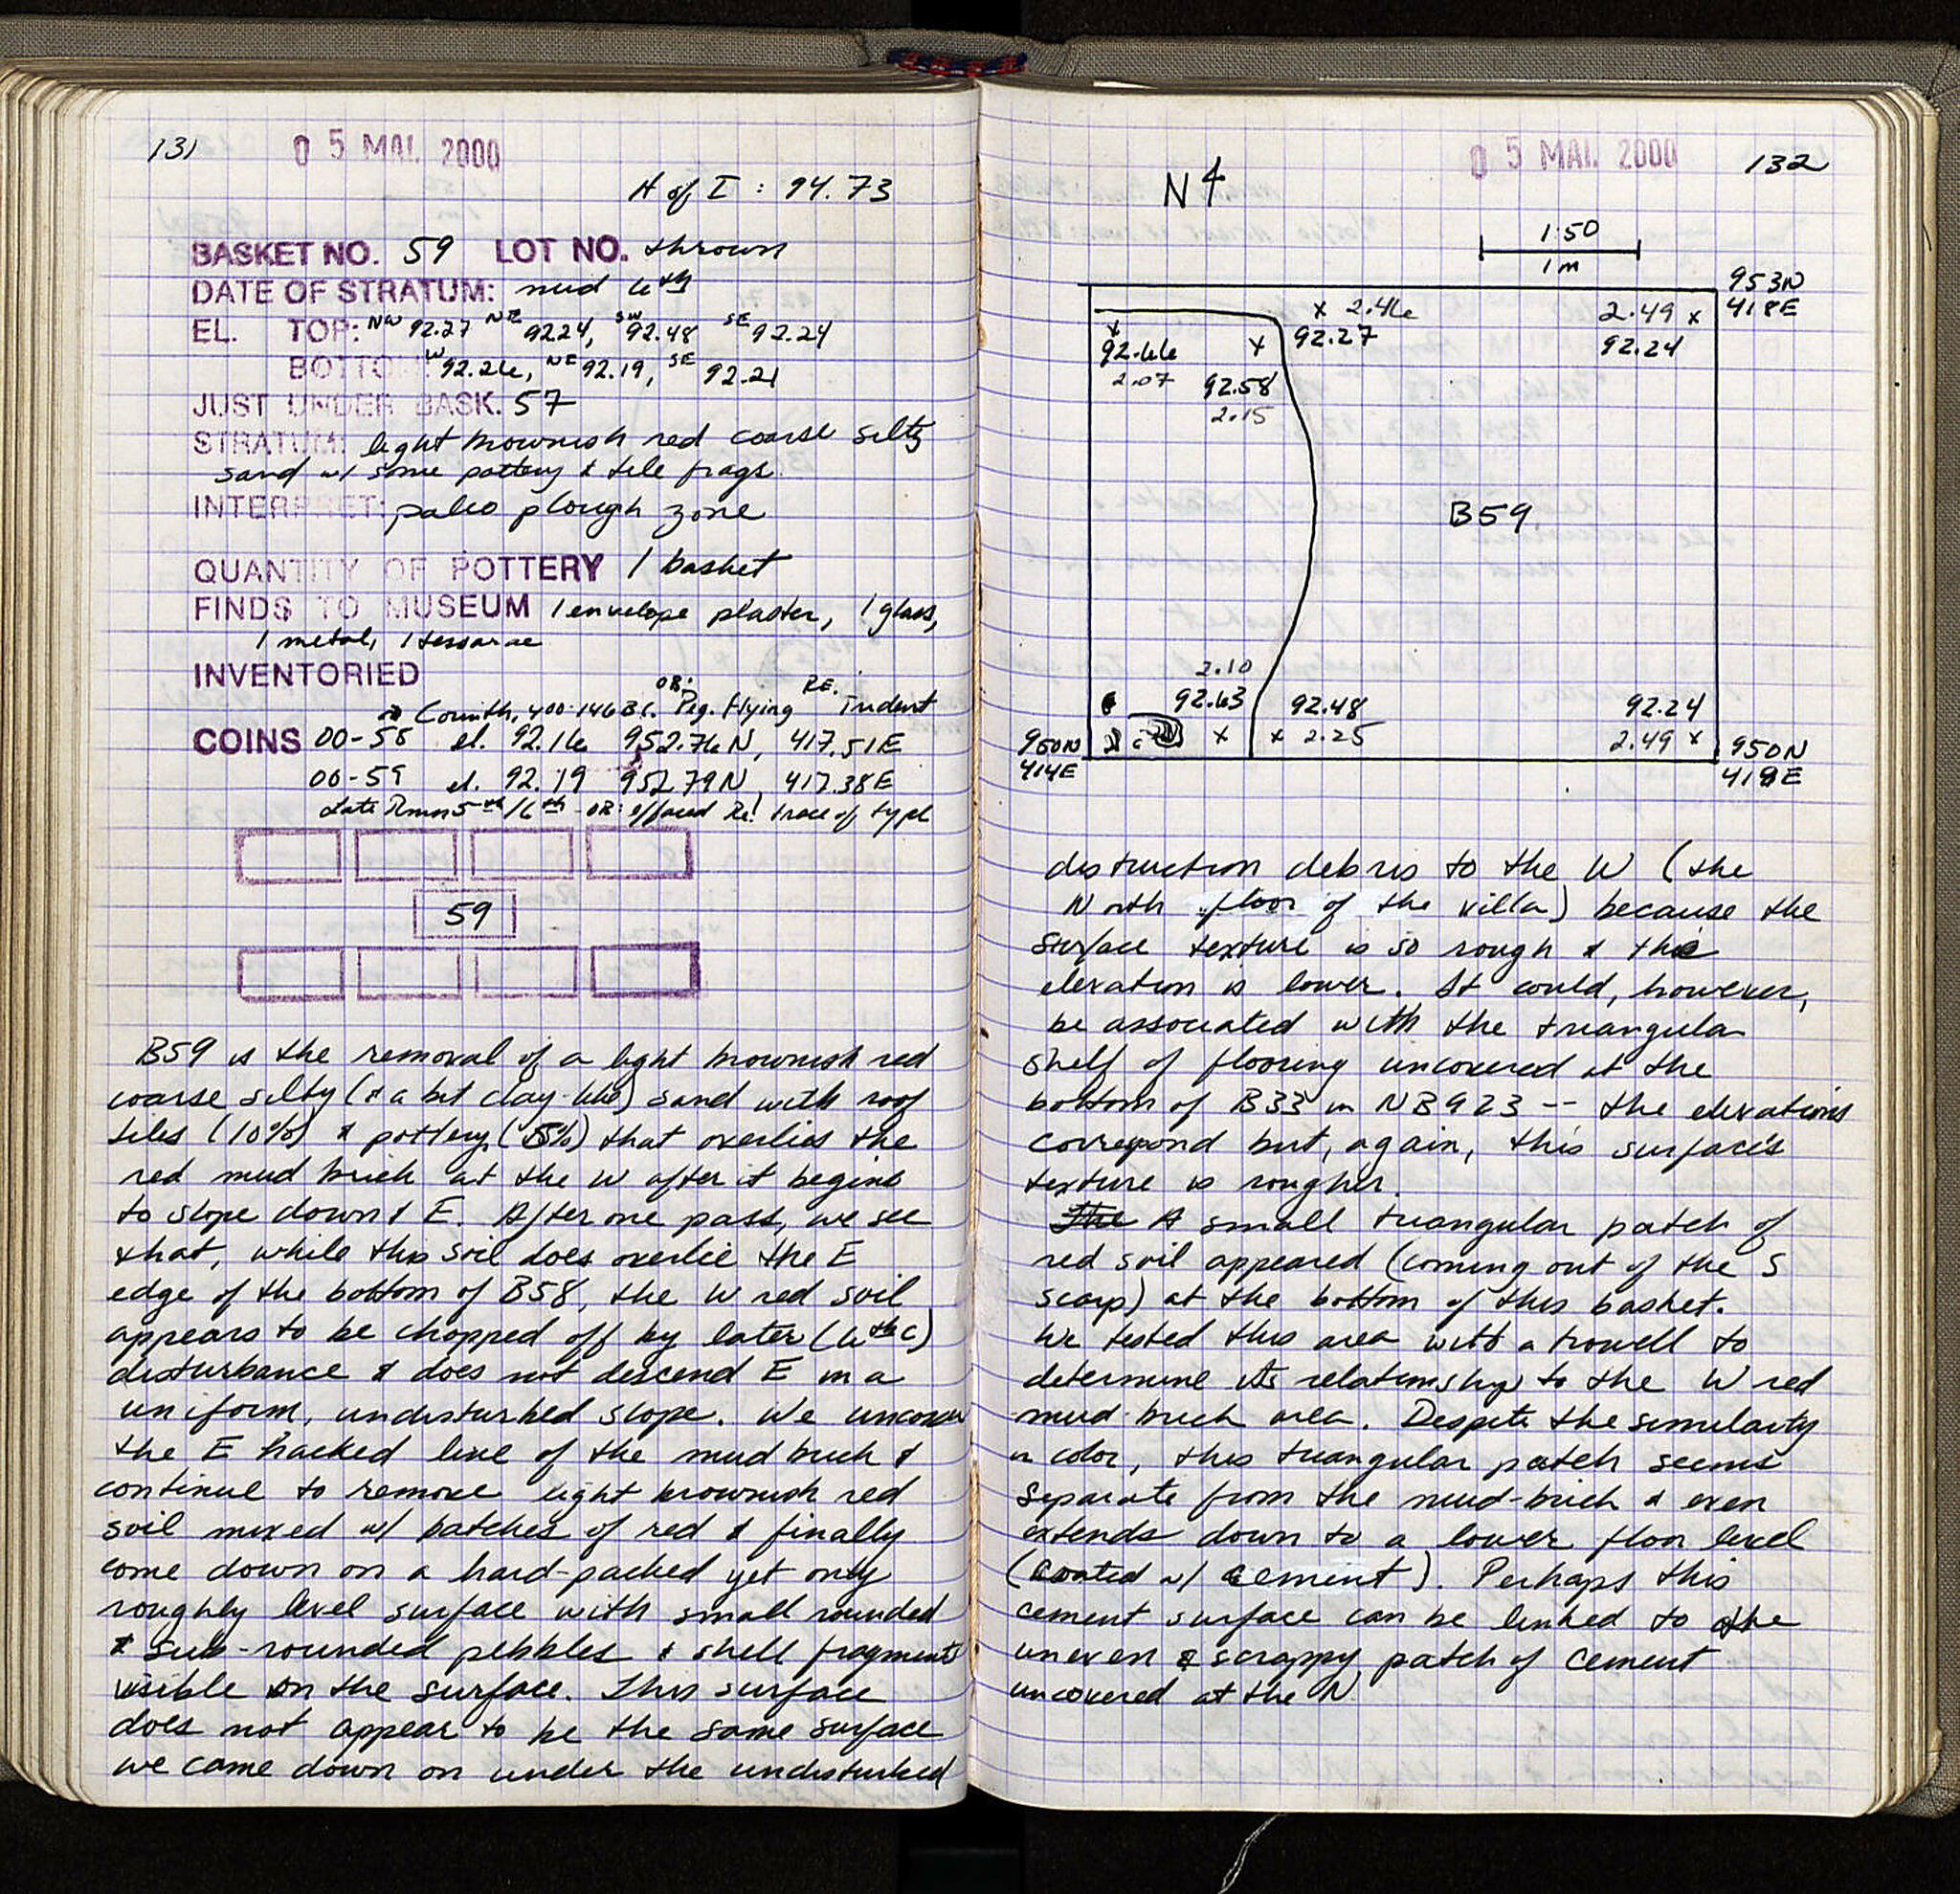 131
05 MAI. 2000
H of I : 94.73
BASKET NO. 59 LOT NO. thrown
DATE OF STRATUM: mid 6th
EL. TOP: NW 92.27 NE 92.24, SW 92.48 SE 92.24
BOTTOM: W 92.26, NE 92.19, SE 92.21
JUST UNDER BASK. 57
STRATUM: light brownish red coarse silty
sand w/ some pottery & tile frags.
INTERPRET: paleo plough zone
QUANTITY OF POTTERY 1 basket
FINDS TO MUSEUM 1 envelope plaster, 1 glass,
1 metal, 1 tesserae
INVENTORIED
OB: RE.
Corinth, 400-146 BC. Peg. flying Trident
COINS 00-58 el. 92.16 952.76N, 417.51E
00-59 el. 92.19 952.79N, 417.38E
Late Roman 5th/6th - OB: effaced Re: trace of type
59
B59 is the removal of a light brownish red
coarse silty (& a bit clay-like) sand with roof
tiles (10%) & pottery (5%) that overlies the
red mud brick at the W after it begins
to slope down E. After one pass, we see
that, while this soil does overlie the E
edge of the bottom of B58, the W red soil
appears to be chopped off by later (6th c)
disturbance & does not descend E in a
uniform, undisturbed slope. We uncover
the E hacked line of the mud brick &
continue to remove light brownish red
soil mixed w/ patches of red & finally
come down on a hard-packed yet only
roughly level surface with small rounded
& sub-rounded pebbles & shell fragments
visible on the surface. This surface
does not appear to be the same surface
we came down on under the undisturbed
05 MAI. 2000
132
N
1:50
1m
953N
418E
x 2.46
92.27
2.49 x
92.24
x
92.66
2.07
x
92.58
2.15
B59
2.10
92.63
x
92.48
x 2.25
92.24
2.49 x
950N
414E
950N
418E
distruction debris to the W (the
North floor of the villa) because the
surface texture is so rough & the
elevation is lower. It could, however,
be associated with the triangular
shelf of flooring uncovered at the
bottom of B33 in NB923 -- the elevations
correspond but, again, this surface's
texture is rougher.
The A small triangular patch of
red soil appeared (coming out of the S
scarp) at the bottom of this basket.
We tested this area with a trowell to
determine its relationship to the W red
mud-brick area. Despite the similarity
in color, this triangular patch seems
separate from the mud-brick & even
extends down to a lower floor level
(coated w/ cement). Perhaps this
cement surface can be linked to the
uneven & scrappy patch of cement
uncovered at the N